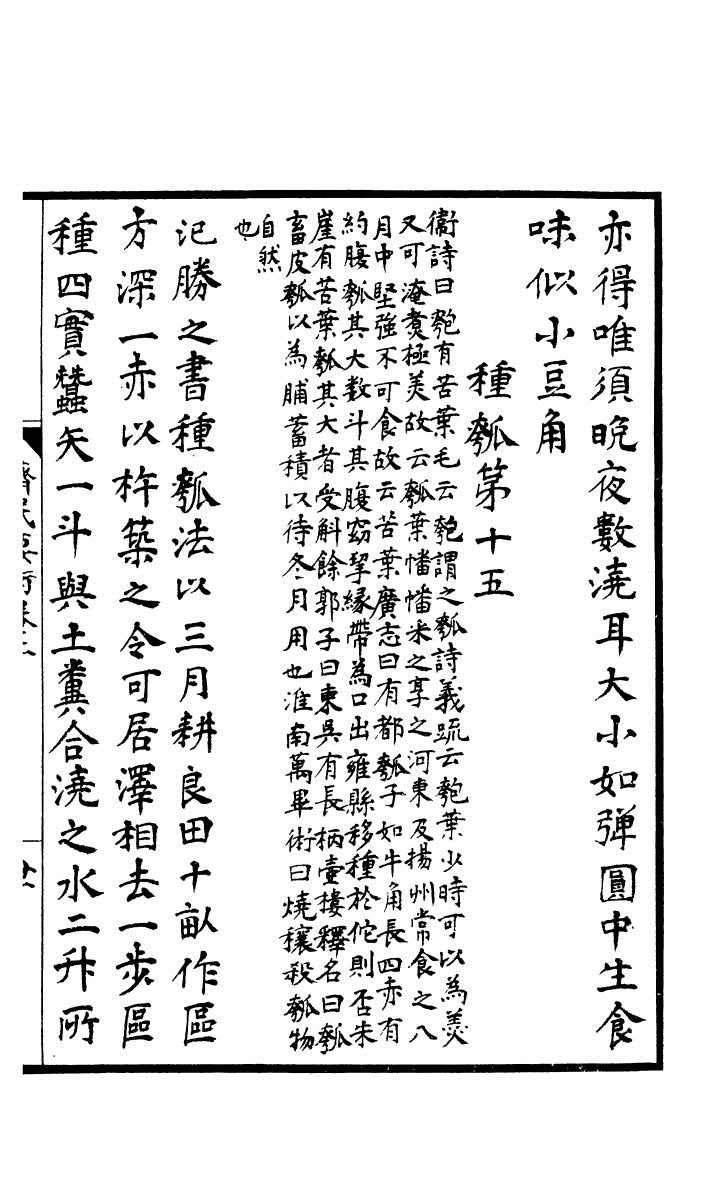 亦得唯須晩夜數澆耳大小如彈圓中生食
味似小豆角
種瓠第十五
衞詩曰匏有苦葉毛云匏謂之瓠詩義疏云匏葉少時可以為羮
又可淹煑極美故云瓠葉幡幡采之享之河東及揚州常食之八
月中堅強不可食故云苦葉廣志曰有都瓠子如牛角長四赤有
約腹瓠其大数斗其腹窈挈緣帶為口出雍縣移種於佗則否朱
崖有苦葉瓠其大者受斛餘郭子曰東吳有長柄壷樓釋名曰瓠
畜皮瓠以為脯蓄積以待冬月用也淮南萬畢術曰燒穰殺瓠物
自然
也
氾勝之書種瓠法以三月耕良田十畝作區
方深一赤以杵築之令可居澤相去一步區
種四實蠶矢一斗與土糞合澆之水二升所
齊民要術卷二
廿